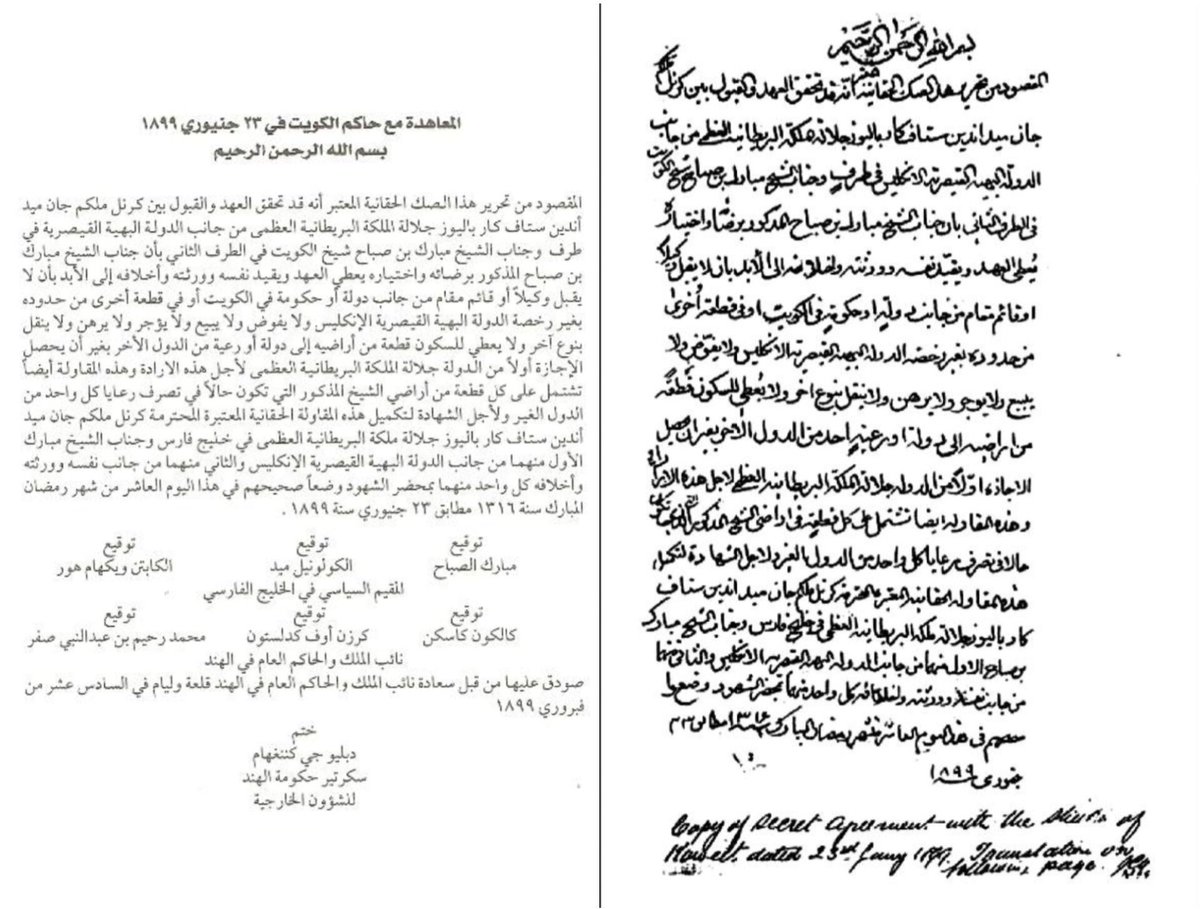 المعاهدة مع حاكم الكويت في ٢٣ جنيوري ١٨٩٩
بسم الله الرحمن الرحيم
المقصود من تحرير هذا الصك الحقانية المعتبر أنه قد تحقق العهد والقبول بين كرنل ملكم جان ميد
أندين ستاف كار باليوز جلالة الملكة البريطانية العظمى من جانب الدولة البهية القيصرية في
طرف وجناب الشيخ مبارك بن صباح شيخ الكويت في الطرف الثاني بأن جناب الشيخ مبارك
بن صباح المذكور برضائه واختياره يعطي العهد ويقيد نفسه وورثته وأخلافه إلى الأبد بأن لا
يقبل وكيلاً أو قائم مقام من جانب دولة أو حكومة في الكويت أو في قطعة أخرى من حدوده
بغير رخصة الدولة البهية القيصرية الإنكليس ولا يفوض ولا يبيع ولا يؤجر ولا يرهن ولا ينقل
بنوع آخر ولا يعطي للسكون قطعة من أراضيه إلى دولة أو رعية من الدول الأخر بغير أن يحصل
الإجازة أولاً من الدولة جلالة الملكة البريطانية العظمى لأجل هذه الارادة وهذه المقاولة أيضاً
تشتمل على كل قطعة من أراضي الشيخ المذكور التي تكون حالاً في تصرف رعايا كل واحد من
الدول الغير ولأجل الشهادة لتكميل هذه المقاولة الحقانية المعتبرة المحترمة كرنل ملكم جان ميد
أندين ستاف كار باليوز جلالة ملكة البريطانية العظمى في خليج فارس وجناب الشيخ مبارك
الأول منهما من جانب الدولة البهية القيصرية الإنكليس والثاني منهما من جانب نفسه وورثته
وأخلافه كل واحد منهما بمحضر الشهود وضعاً صحيحهم في هذا اليوم العاشر من شهر رمضان
المبارك سنة ١٣١٦ مطابق ٢٣ جنيوري سنة ١٨٩٩ .
توقيع توقيع توقيع
مبارك الصباح الكولونيل ميد الكابتن ويكهام هور
المقيم السياسي في الخليج الفارسي
توقيع توقيع توقيع
كالكون كاسكن كرزن أوف كدلستون محمد رحيم بن عبدالنبي صفر
نائب الملك والحاكم العام في الهند
صودق عليها من قبل سعادة نائب الملك والحاكم العام في الهند قلعة وليام في السادس عشر من
فبروري ١٨٩٩
ختم
دبليو جي كننغهام
سكرتير حكومة الهند
لنشؤون الخارجية
بسم الله الرحمن الرحيم
المقصود من تحرير هذا الصك الحقانية أنه قد تحقق العهد والقبول بين كرنل ملكم
جان ميد اندين ستاف كار باليوز جلالة الملكة البريطانية العظمى من جانب
الدولة البهية القيصرية الانكليس في طرف وجناب الشيخ مبارك بن صباح شيخ الكويت
في الطرف الثاني بان جناب الشيخ مبارك بن صباح المذكور برضائه واختياره
يُعطي العهد ويقيّد نفسه وورثته واخلافه الى الأبد بان لا يقبل وكيلا
او قائم مقام من جانب دولةٍ او حكومةٍ في الكويت او في قطعة أُخرى
من حدوده بغير رخصة الدولة البهية القيصرية الانكليس ولا يفوّض ولا
يبيع ولا يوجر ولا يرهن ولا ينقل بنوع اخر ولا يُعطي للسكون قطعةً
من اراضيه الى دولة او رعيةٍ احد من الدول الاخر بغير ان يحصل
الاجازة اولاً من الدولة جلالة الملكة البريطانية العظمى لاجل هذه الارادة
وهذه المقاولة ايضا تشتمل على كل قطعة في اراضي الشيخ المذكور التي تكون
حالا في تصرف رعايا كل واحد من الدول الغير ولاجل الشهادة لتكميل
هذه المقاولة الحقانية المعتبرة المحترمة كرنل ملكم جان ميد اندين ستاف
كار باليوز جلالة ملكة البريطانية العظمى في خليج فارس وجناب الشيخ مبارك
بن صباح الاول منهما من جانب الدولة البهية القيصرية الانكليس والثاني منهما
من جانب نفسه وورثته واخلافه كل واحد منهما بمحضر الشهود وضعوا
في هذا اليوم العاشر من شهر رمضان المبارك ١٣١٦ مطابق ٢٣
جنوري ١٨٩٩
Copy of Secret Agreement with the Sheikh of
Koweit dated 23rd Jany 1899. Translation on
following page.